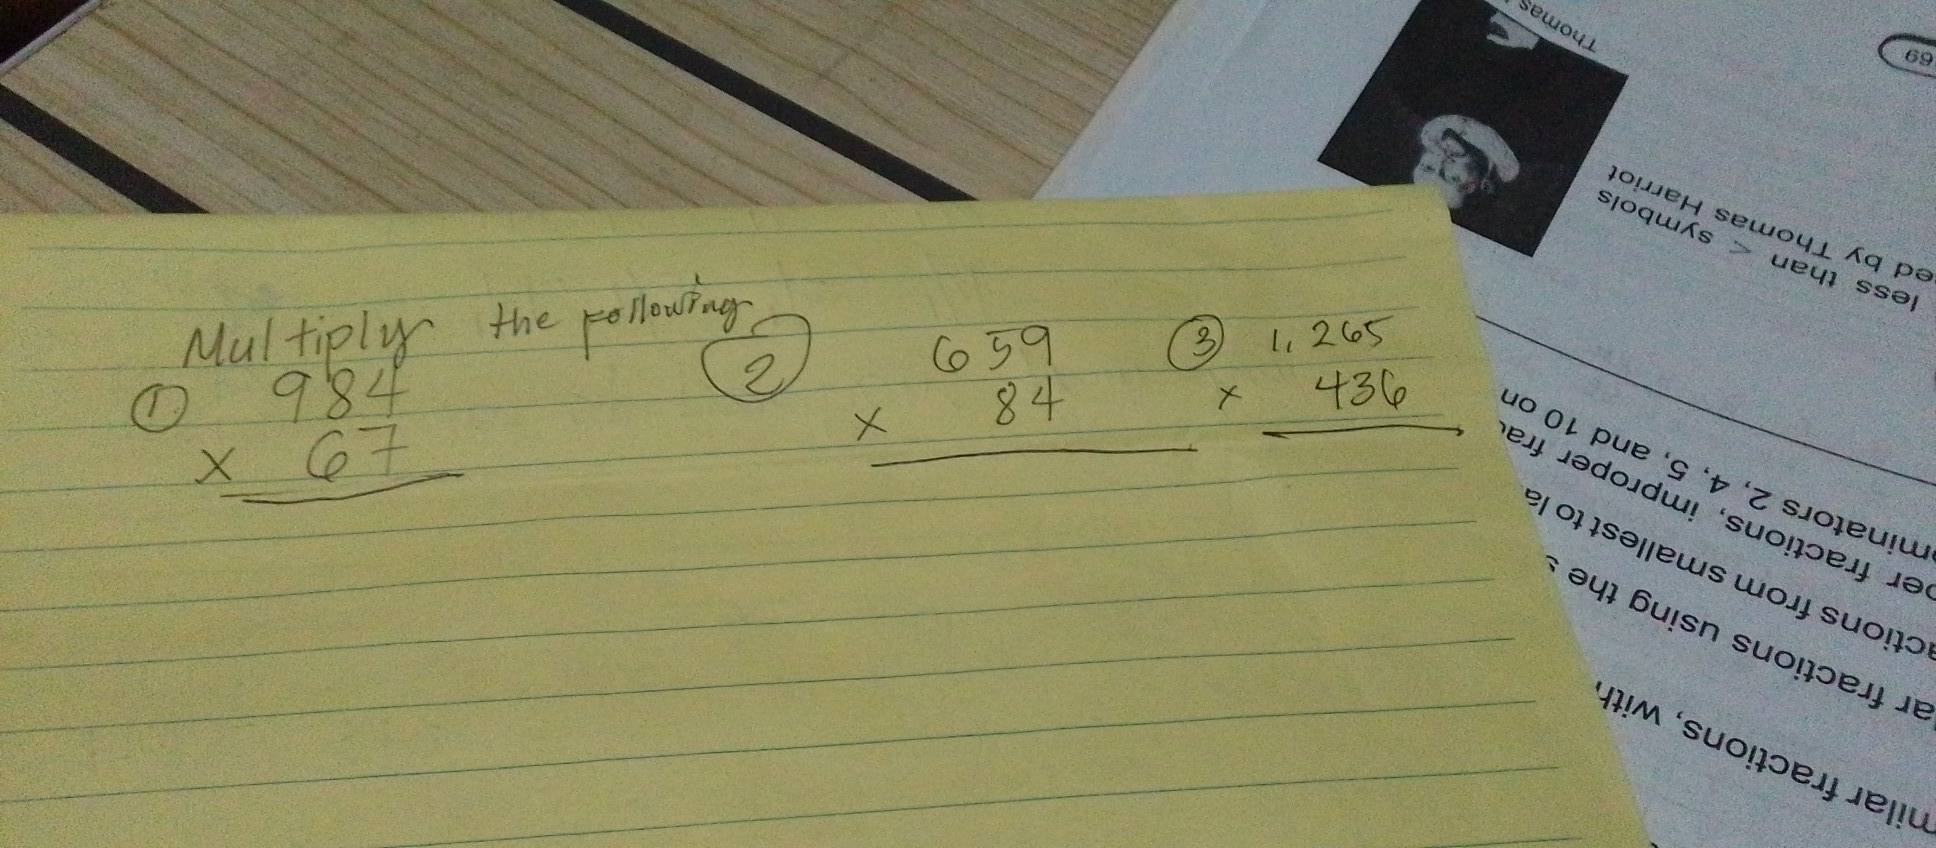 Multiply the following
① 984
x 67
② 659
x 84
③ 1,265
x 436
Thomas
69
less than < symbols
ed by Thomas Harriot
ominators 2, 4, 5, and 10 on
per fractions, improper frac
actions from smallest to la
lar fractions using the s
milar fractions, with